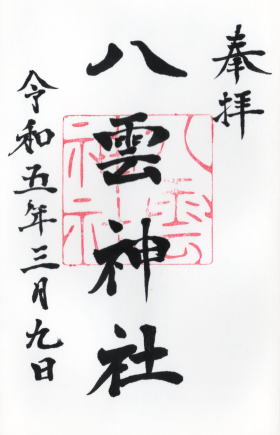 奉拝
八雲神社
八雲神社
令和五年三月九日